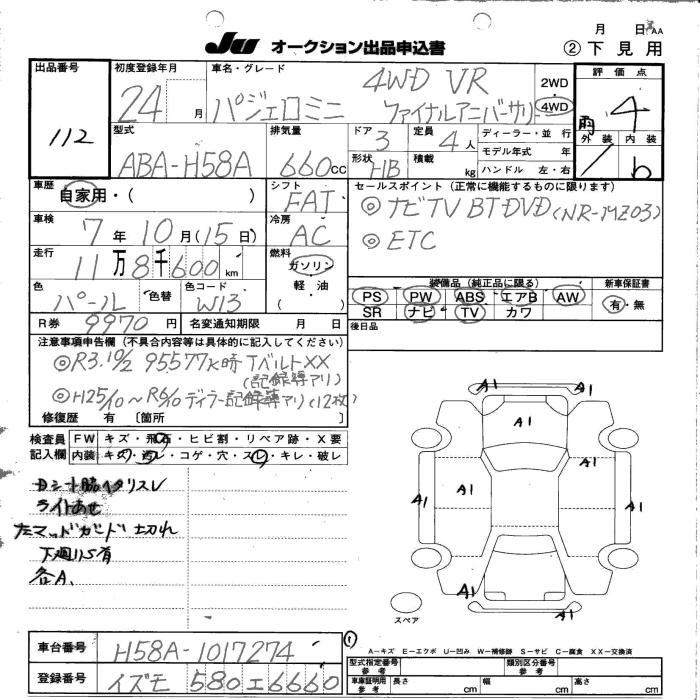 月 日 AA
JU オークション出品申込書 ②下見用
出品番号 初度登録年月 車名・グレード 評価点
112 24月 パジェロミニ 4WD VR ファイナルアニバーサリー 2WD 4WD 雨 4
型式 排気量 ドア 定員 ディーラー・並行 外装 内装
ABA-H58A 660cc 3 4人 モデル年式 年
形状 積載 ハンドル 左・右
HB kg
b
車歴 シフト セールスポイント(正常に機能するものに限ります)
自家用・( ) FAT
◎ ナビTV BT DVD(NR-MZ03)
車検 冷房
7年10月(15日) AC
◎ ETC
走行 燃料
11万8千600km ガソリン
軽油
( )
装備品(純正品に限る) 新車保証書
色 色替 色コード
パール W13
PS PW ABS エアB AW 有・無
SR ナビ TV カワ
R券 9970円 名変通知期限 月 日
後日品
注意事項申告欄(不具合内容等は具体的に記入してください)
◎R3.10/2 95577K時TベルトXX
(記録簿アリ)
◎H25/10~R6/10ディラー記録簿アリ(12枚)
修復歴 有 〔箇所 〕
検査員記入欄
FW キズ・飛石・ヒビ割・リペア跡・X要
内装 キズ・汚レ・コゲ・穴・スレ・キレ・破レ
Dシート脇ヘタリスレ
ライトあせ
マッドガード切れ
下廻りS有
各A.
A1 A1
A1
A1 A1
A1 A1 A1
A1
A1 A1
スペア
A-キズ E-エクボ U-凹み W-補修跡 S-サビ C-腐食 XX-交換済
車台番号 H58A-1017274
登録番号 イズモ 580エ6660
型式指定番号 参考 類別区分番号 参考
車庫証明用 参考 長さ cm 幅 cm 高さ cm